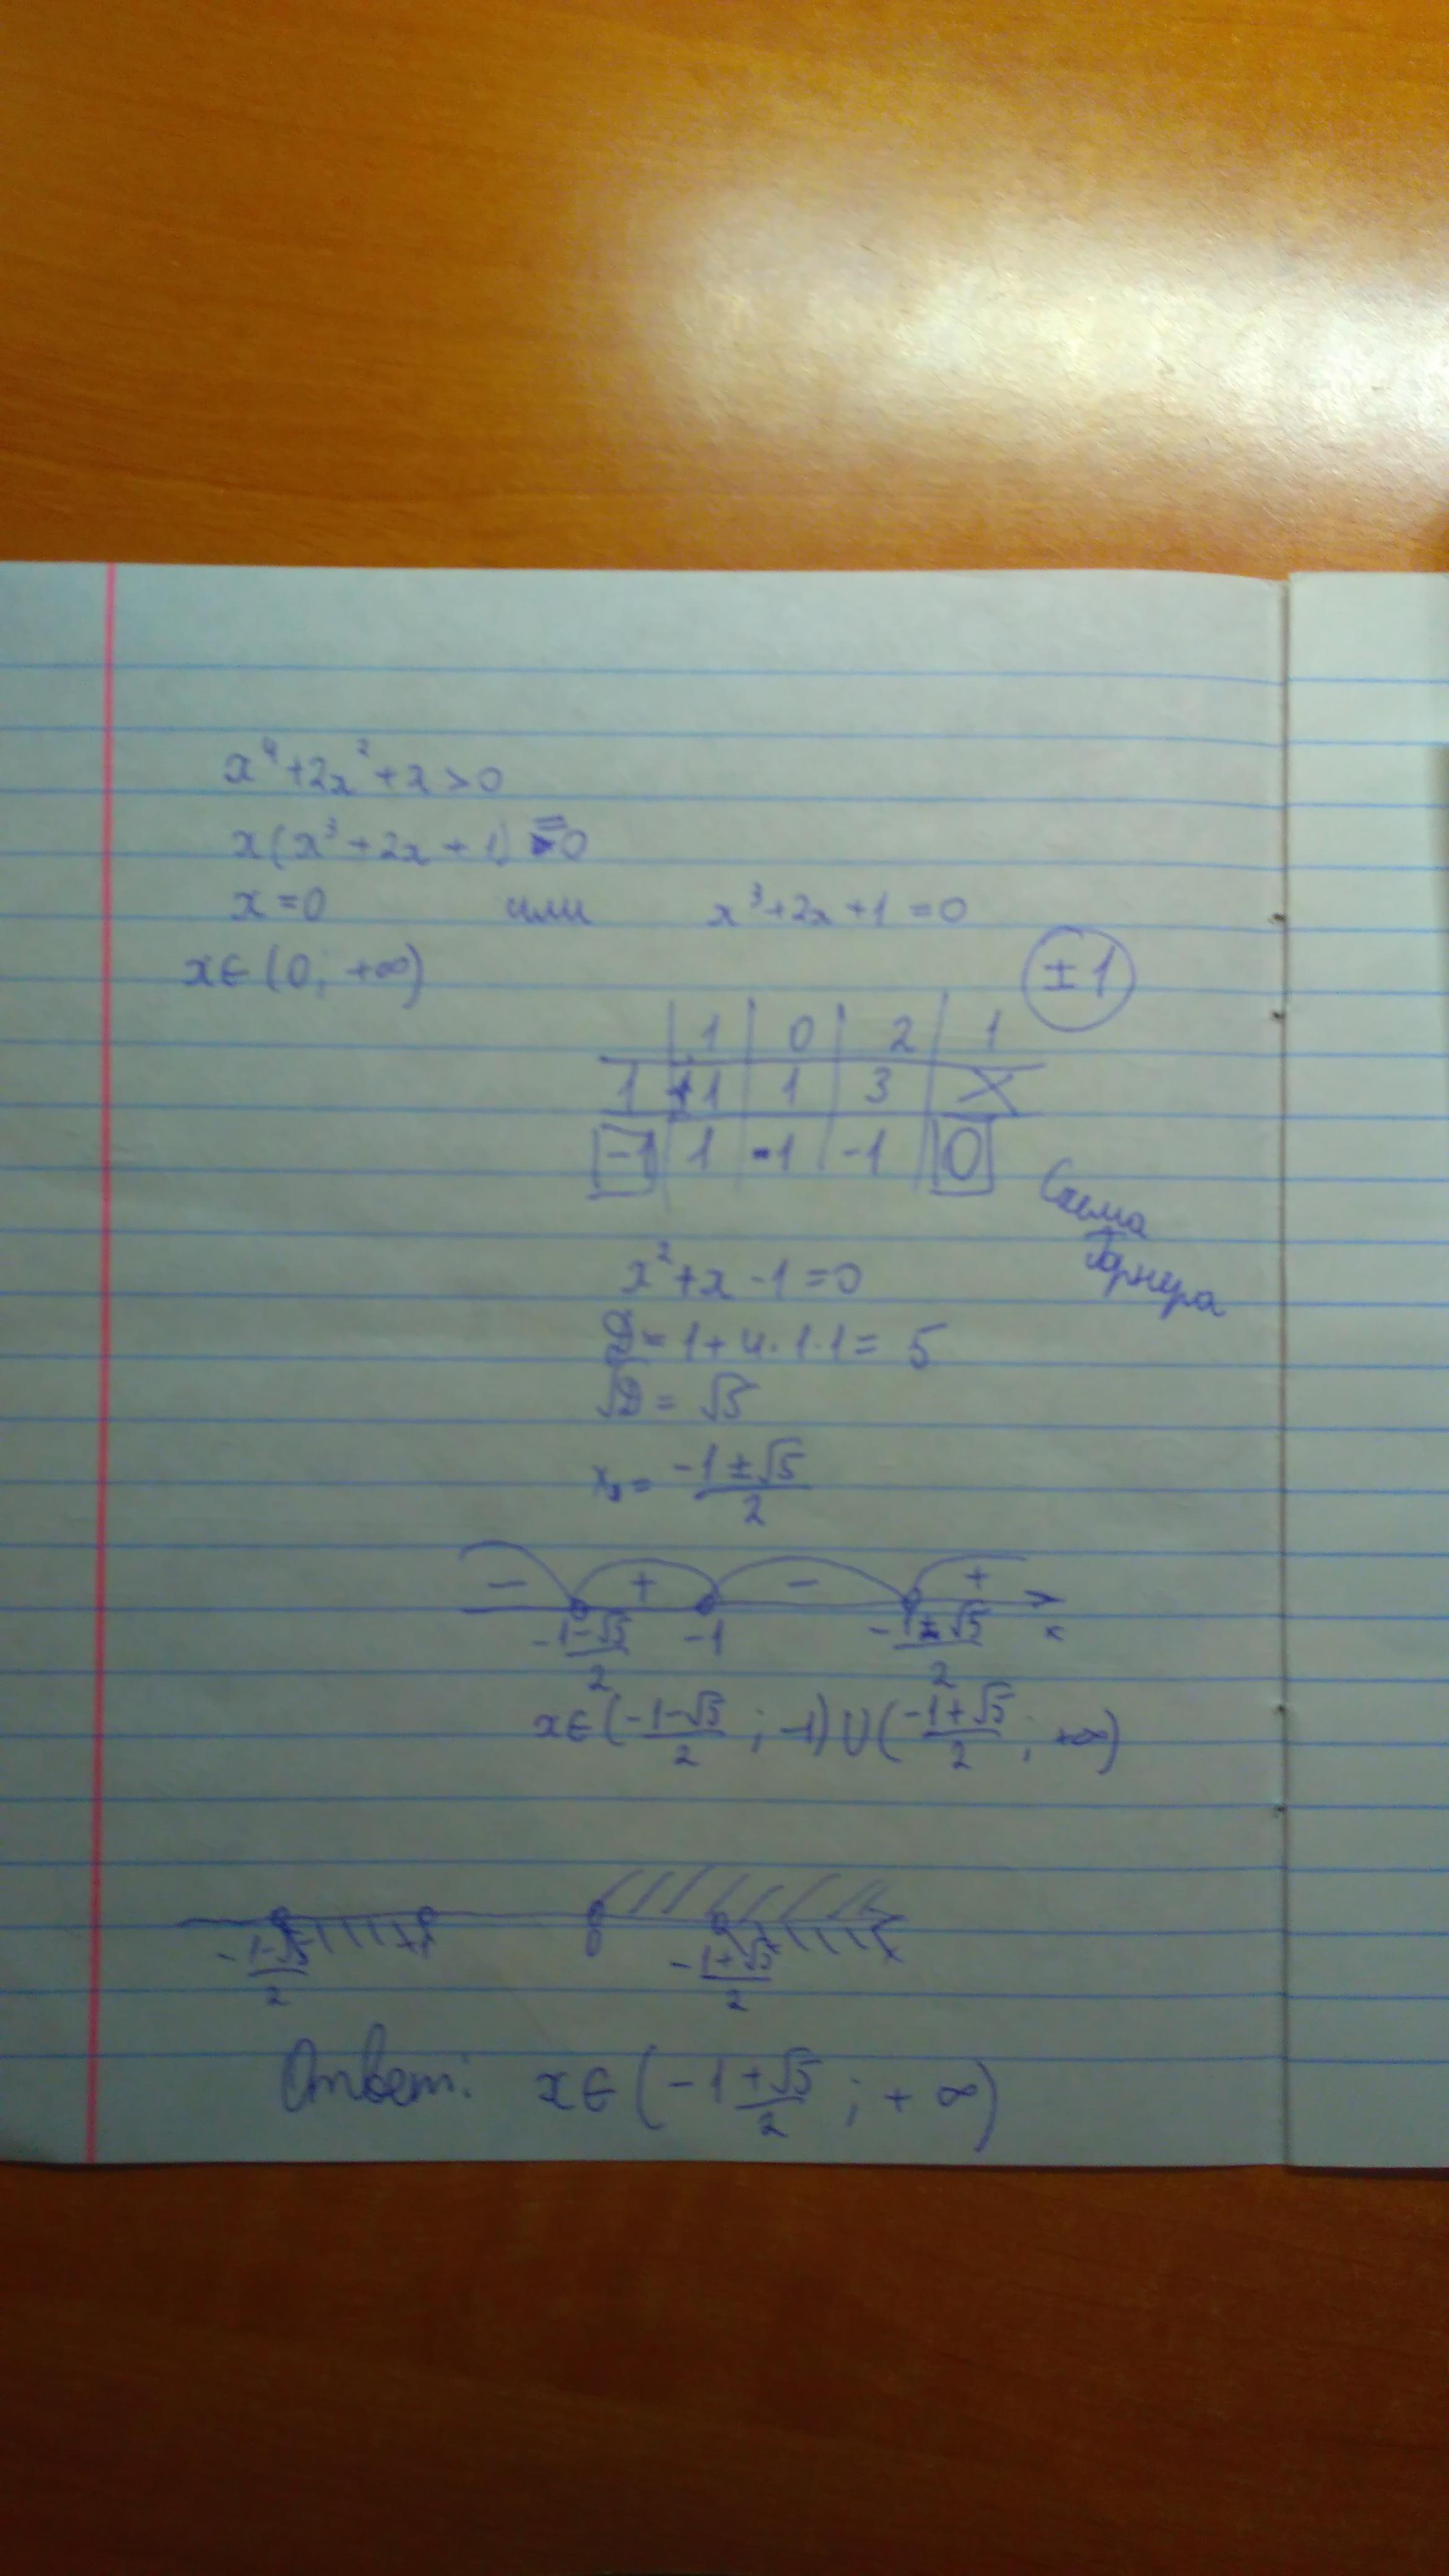 x⁴+2x²+x>0
x(x³+2x+1)=0
x=0 или x³+2x+1=0
x∈(0; +∞)
±1
1 0 2 1
1 1 1 3 X
-1 1 -1 -1 0
Схема
Горнера
x²+x-1=0
D=1+4·1·1=5
√D=√5
x=(-1±√5)/2
- + - +
(-1-√5)/2 -1 (-1±√5)/2 x
x∈((-1-√5)/2; -1)∪((-1+√5)/2; +∞)
(-1-√5)/2 -1 0 (-1+√5)/2 x
Ответ: x∈((-1+√5)/2; +∞)